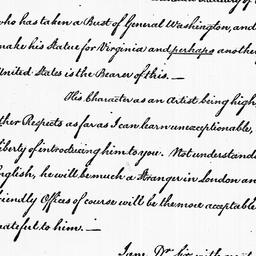 who has taken a Bust of General Washington, and
make his Statue for Virginia and perhaps another
United States is the Bearer of this. —
His Character as an Artist being high
other Respects as far as I can learn unexceptionable,
liberty of introducing him to you. Not understand
English, he will be much a Stranger in London an
friendly Offices of course will be the more acceptable
grateful to him. —
I am, Dr. Sir with